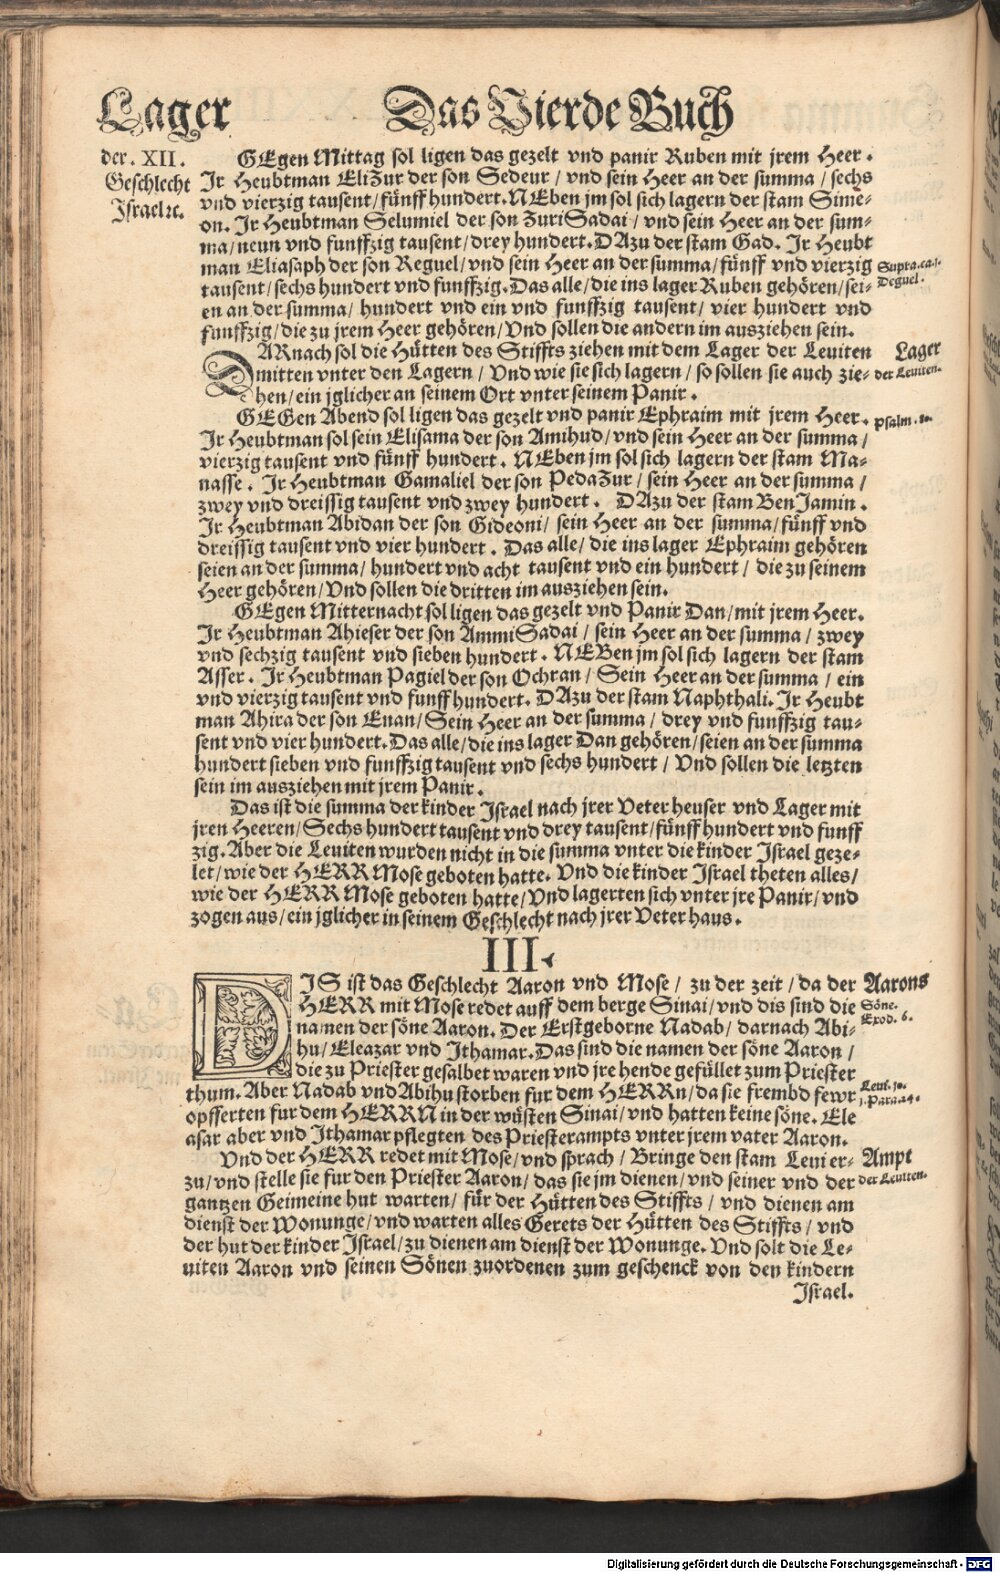 Lager
Das Vierde Buch
der. XII.
Geschlecht
Israel ꝛc.
GEgen Mittag sol ligen das gezelt vnd panir Ruben mit jrem Heer.
Jr Heubtman EliZur der son Sedeur / vnd sein Heer an der summa / sechs
vnd vierzig tausent / fünff hundert. NEben jm sol sich lagern der stam Sime-
on. Jr Heubtman Selumiel der son ZuriSadai / vnd sein Heer an der sum-
ma / neun vnd funffzig tausent / drey hundert. DAzu der stam Gad. Jr Heubt
man Eliasaph der son Reguel / vnd sein Heer an der summa / fünff vnd vierzig
tausent / sechs hundert vnd funffzig. Das alle / die ins lager Ruben gehören / sei-
en an der summa / hundert vnd ein vnd funffzig tausent / vier hundert vnd
funffzig / die zu jrem Heer gehören / Vnd sollen die andern im ausziehen sein.
Supra.ca.1.
Deguel.
DARnach sol die Hütten des Stiffts ziehen mit dem Lager der Leuiten
mitten vnter den Lagern / Vnd wie sie sich lagern / so sollen sie auch zie-
hen / ein jglicher an seinem Ort vnter seinem Panir.
Lager
der Leuiten.
GEGen Abend sol ligen das gezelt vnd panir Ephraim mit jrem Heer.
Jr Heubtman sol sein Elisama der son Amihud / vnd sein Heer an der summa /
vierzig tausent vnd fünff hundert. NEben jm sol sich lagern der stam Ma-
nasse. Jr Heubtman Gamaliel der son PedaZur / sein Heer an der summa /
zwey vnd dreissig tausent vnd zwey hundert. DAzu der stam BenJamin.
Jr Heubtman Abidan der son Gideoni / sein Heer an der summa / fünff vnd
dreissig tausent vnd vier hundert. Das alle / die ins lager Ephraim gehören
seien an der summa / hundert vnd acht tausent vnd ein hundert / die zu seinem
Heer gehören / Vnd sollen die dritten im ausziehen sein.
Psalm.
GEgen Mitternacht sol ligen das gezelt vnd Panir Dan / mit jrem Heer.
Jr Heubtman Ahieser der son AmmiSadai / sein Heer an der summa / zwey
vnd sechzig tausent vnd sieben hundert. NEBen jm sol sich lagern der stam
Asser. Jr Heubtman Pagiel der son Ochran / Sein Heer an der summa / ein
vnd vierzig tausent vnd funff hundert. DAzu der stam Naphthali. Jr Heubt
man Ahira der son Enan / Sein Heer an der summa / drey vnd funffzig tau-
sent vnd vier hundert. Das alle / die ins lager Dan gehören / seien an der summa
hundert sieben vnd funffzig tausent vnd sechs hundert / Vnd sollen die letzten
sein im ausziehen mit jrem Panir.
Das ist die summa der kinder Israel nach jrer Veter heuser vnd Lager mit
jren Heeren / Sechs hundert tausent vnd drey tausent / fünff hundert vnd funff
zig. Aber die Leuiten wurden nicht in die summa vnter die kinder Israel geze-
let / wie der HERR Mose geboten hatte. Vnd die kinder Israel theten alles /
wie der HERR Mose geboten hatte / Vnd lagerten sich vnter jre Panir / vnd
zogen aus / ein jglicher in seinem Geschlecht nach jrer Veter haus.
III.
DIS ist das Geschlecht Aaron vnd Mose / zu der zeit / da der
HERR mit Mose redet auff dem berge Sinai / vnd dis sind die
namen der söne Aaron. Der Erstgeborne Nadab / darnach Abi-
hu / Eleazar vnd Ithamar. Das sind die namen der söne Aaron /
die zu Priester gesalbet waren vnd jre hende gefüllet zum Priester
thum. Aber Nadab vnd Abihu storben fur dem HERRn / da sie frembd fewr
opfferten fur dem HERRN in der wüsten Sinai / vnd hatten keine söne. Ele
asar aber vnd Ithamar pflegten des Priesterampts vnter jrem vater Aaron.
Aarons
Söne.
Exod. 6.
Leui. 10.
1. Para.24.
Vnd der HERR redet mit Mose / vnd sprach / Bringe den stam Leui er-
zu / vnd stelle sie fur den Priester Aaron / das sie jm dienen / vnd seiner vnd der
gantzen Geimeine hut warten / für der Hütten des Stiffts / vnd dienen am
dienst der Wonunge / vnd warten alles Gerets der Hütten des Stiffts / vnd
der hut der kinder Israel / zu dienen am dienst der Wonunge. Vnd solt die Le-
uiten Aaron vnd seinen Sönen zuordenen zum geschenck von den kindern
Israel.
Ampt
der Leuiten.
Digitalisierung gefördert durch die Deutsche Forschungsgemeinschaft - DFG